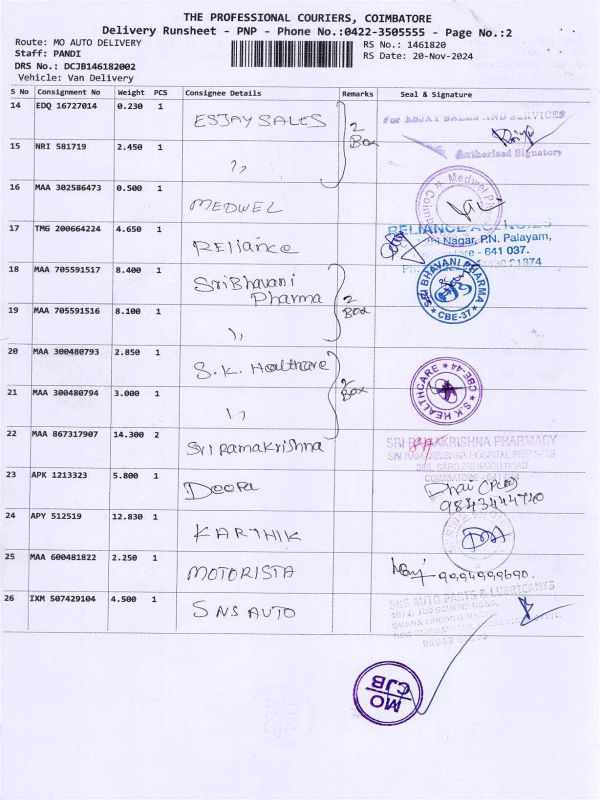 THE PROFESSIONAL COURIERS, COIMBATORE
Delivery Runsheet - PNP - Phone No.:0422-3505555 - Page No.:2
Route: MO AUTO DELIVERY
RS No.: 1461820
Staff: PANDI
RS Date: 20-Nov-2024
DRS No.: DCJB146182002
Vehicle: Van Delivery
S No Consignment No Weight PCS Consignee Details Remarks Seal & Signature
14 EDQ 16727014 0.230 1 ESJAY SALES
For ESJAY SALES AND SERVICES
2 Box
Authorised Signatory
15 NRI 581719 2.450 1 "
16 MAA 302586473 0.500 1 MEDWEL
Medwel
17 TMG 200664224 4.650 1 Reliance
RELIANCE AGENCIES
Nagar, P.N. Palayam,
641 037.
18 MAA 705591517 8.400 1 Sri Bhavani Pharma
2 Box
SRI BHAVANI PHARMA
CBE-37
19 MAA 705591516 8.100 1 "
20 MAA 300480793 2.850 1 S.K. Healthcare
2 Box
S K HEALTHCARE
CBE-44
21 MAA 300480794 3.000 1 "
22 MAA 867317907 14.300 2 Sri Ramakrishna
SRI RAMAKRISHNA PHARMACY
SRI RAMAKRISHNA HOSPITAL PREMISES
395, SAROJINI NAIDU ROAD
COIMBATORE - 641
23 APK 1213323 5.800 1 Deepa
9843444740
24 APY 512519 12.830 1 KARTHIK
25 MAA 600481822 2.250 1 MOTORISTA
9994999690.
26 IXM 507429104 4.500 1 SNS AUTO
SNS AUTO PARTS & LUBRICANTS
MO
CJB